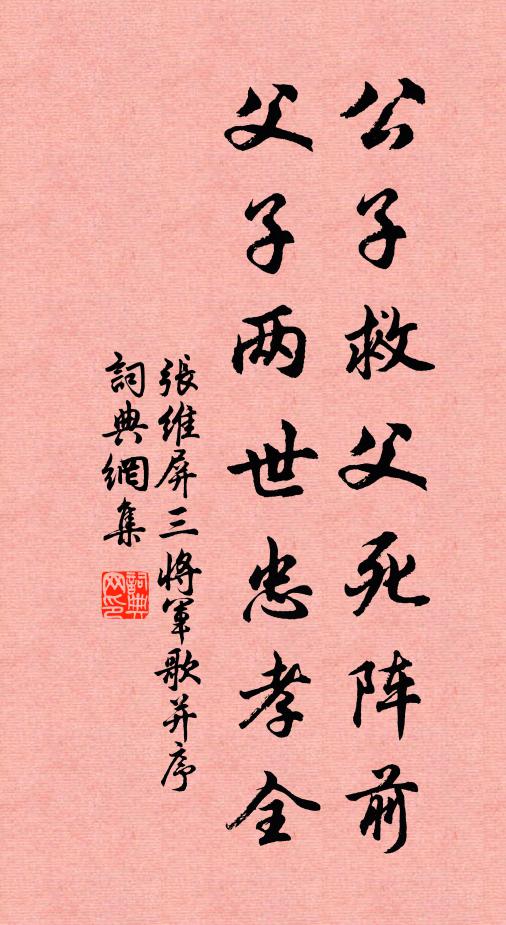 公子救父死阵前
父子两世忠孝全
張維屏三将軍歌并序
詞典網集
詞典网印